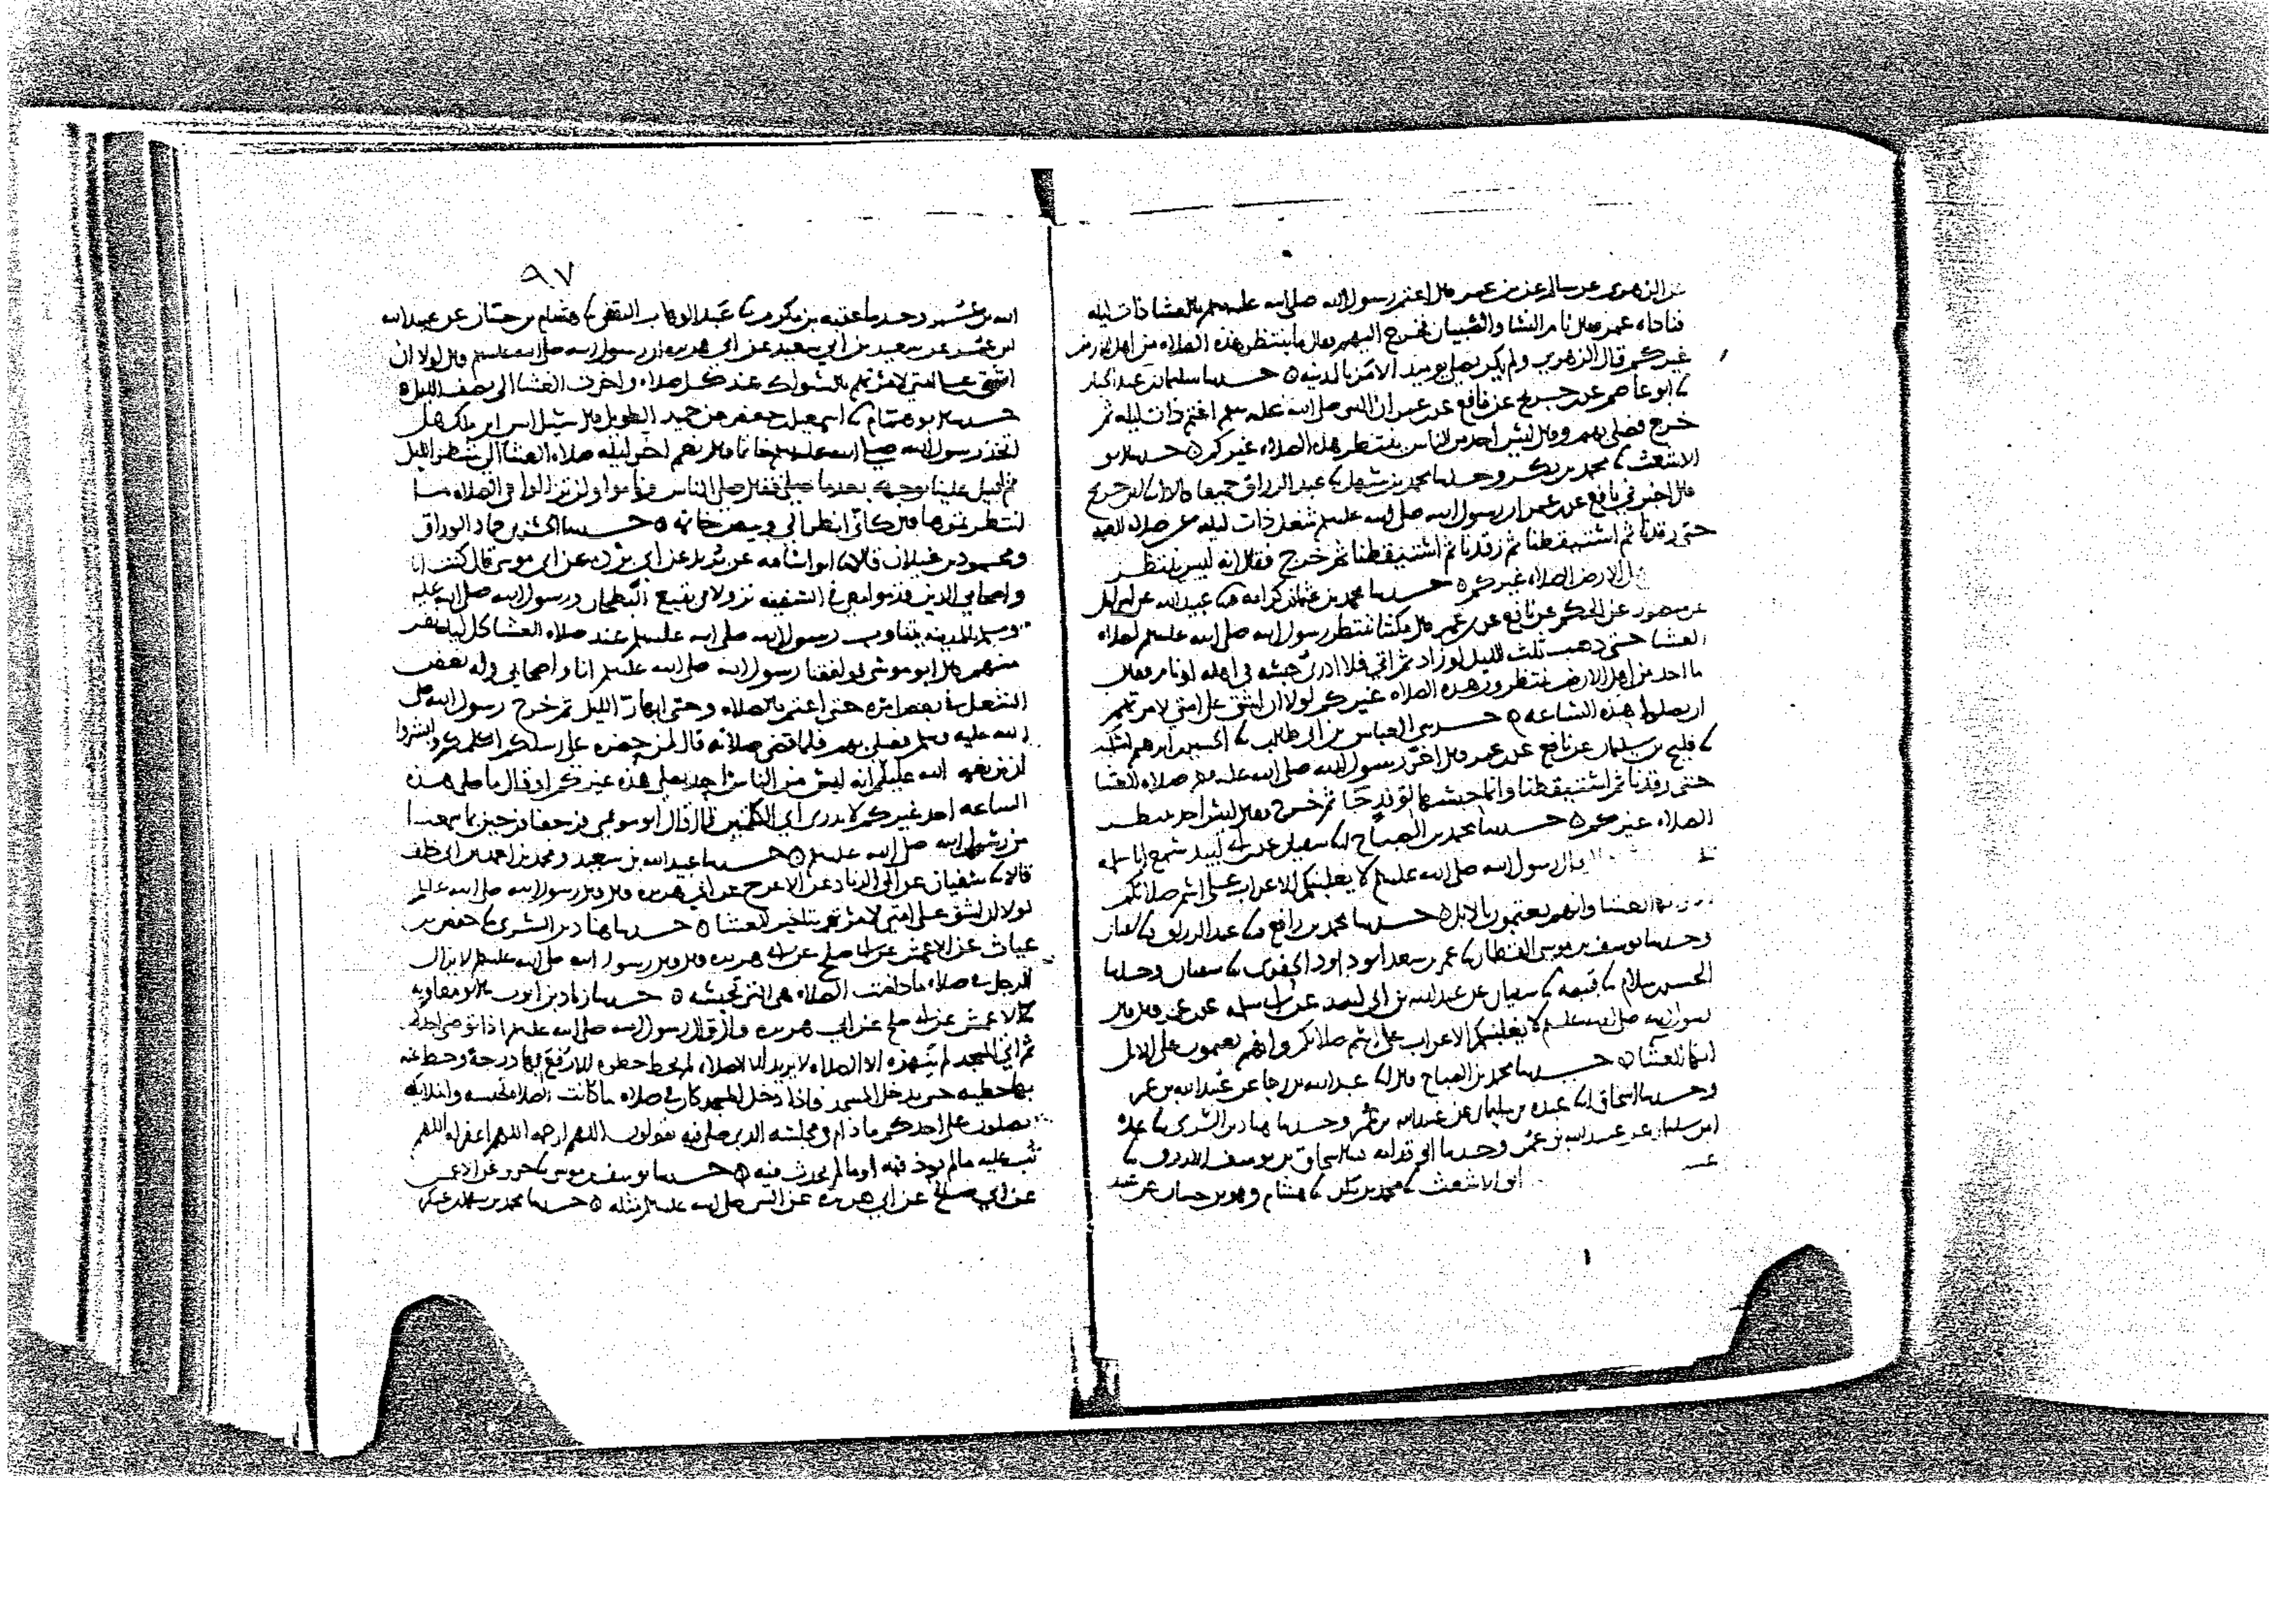 الزهري عن سالم عن بن عمر قال اعتم رسول الله صلى الله عليه وسلم بالعشا ذات ليله
فناداه عمر فقال نام النسا والصبيان فخرج اليهم فقال ما ينتظر هذه الصلاه من اهل الارض
غيركم قال الزهري ولم يكن يصلي يوميذ الا من بالمدينه حدثنا سليمان بن عبد الجبار
ابو عاصم عن جريج عن نافع عن عمر ان النبي صلى الله عليه وسلم اعتم ذات ليله ثم
خرج فصلى بهم وقال ليس احد من الناس ينتظر هذه الصلاه غيركم حدثنا ابو
الاشعث محمد بن بكر وحدثنا محمد بن سهل عبد الرزاق جميعا قالا بن جريج
قال اخبرني نافع عن عمر ان رسول الله صلى الله عليه وسلم شغل ذات ليله عن صلاه العتمه
حتى رقدنا ثم استيقظنا ثم رقدنا ثم استيقظنا ثم خرج فقال انه ليس ينتظر
الارض الصلاه غيركم حدثنا محمد بن عثمان بن كرامه عبيد الله عن
عن منصور عن الحكم عن نافع عن بن عمر قال مكثنا ننتظر رسول الله صلى الله عليه وسلم لصلاه
العشا حتى ذهب ثلث الليل او زاد ثم اتى فلا ادري حبسه في اهله او نام فقال
ما احد من اهل الارض ينتظرون هذه الصلاه غيركم لولا ان اشق على امتي لامرتهم
ان يصلوا هذه الساعه حدثني العباس بن ابي طالب
فليح بن سليمان عن نافع عن عمر قال اخر رسول الله صلى الله عليه وسلم صلاه العشا
حتى رقدنا ثم استيقظنا وانما حبسنا لوفد جا ثم خرج فقال ليس احد ينتظر
الصلاه غيركم حدثنا محمد بن الصباح سفيان عن ابي لبيد سمع ابا سلمه
قال رسول الله صلى الله عليه وسلم لا يغلبنكم الاعراب على اسم صلاتكم
العشا وانهم يعتمون بالابل حدثنا محمد بن رافع عبد الرزاق سفيان
وحدثنا يوسف بن موسى القطان عمر بن سعد ابو داود الحفري سفيان وحدثنا
الحسين بن سلام قبيصه سفيان عن عبد الله بن ابي لبيد عن ابي سلمه عن عمر قال قال
رسول الله صلى الله عليه وسلم لا يغلبنكم الاعراب على اسم صلاتكم وانهم يعتمون على الابل
انها العشا حدثنا محمد بن الصباح قال عبد الله بن رجا عن عبيد الله بن عمر
وحدثنا اسحاق عبده بن سليمان عن عبيد الله بن عمر وحدثنا هناد بن السري عبده
بن سليمان عن عبيد الله بن عمر وحدثنا ابو قدامه اسحاق بن يوسف الازرق
ابو الاشعث محمد بن بكر هشام وهو بن حسان عن عبيد
٩٧
الله بن عمر وحدثنا عقبه بن مكرم عبد الوهاب الثقفي هشام بن حسان عن عبيد الله
بن عمر عن سعيد بن ابي سعيد عن ابي هريره ان رسول الله صلى الله عليه وسلم قال لولا ان
اشق على امتي لامرتهم بالسواك عند كل صلاه واخرت العشا الى نصف الليل
حدثنا ابو همام اسمعيل بن جعفر عن حميد الطويل قال سيل انس بن مالك هل
اتخذ رسول الله صلى الله عليه وسلم خاتما قال نعم اخر ليله صلاه العشا الى شطر الليل
ثم اقبل علينا بوجهه بعدما صلى فقال صلى الناس وناموا ولن تزالوا في الصلاه ما
انتظرتموها قال كاني انظر الى وبيص خاتمه حدثنا الحسن بن حماد الوراق
ومحمود بن غيلان قالا ابو اسامه عن بريد عن ابي برده عن ابي موسى قال كنت انا
واصحابي الذين قدموا معي في السفينه نزولا في بقيع البطحان ورسول الله صلى الله عليه
وسلم بالمدينه يتناوب رسول الله صلى الله عليه وسلم عند صلاه العشا كل ليله نفر
منهم قال ابو موسى فوافقنا رسول الله صلى الله عليه وسلم انا واصحابي وله بعض
الشغل في بعض امره حتى اعتم بالصلاه وحتى ابهار الليل ثم خرج رسول الله صلى
الله عليه وسلم فصلى بهم فلما قضى صلاته قال لمن حضره على رسلكم اعلمكم وابشروا
ان من نعمه الله عليكم انه ليس من الناس احد يصلي هذه غيركم او قال ما صلى هذه
الساعه احد غيركم لا يدرى اي الكلمتين قال قال ابو موسى فرجعنا فرحين بما سمعنا
من رسول الله صلى الله عليه وسلم حدثنا عبيد الله بن سعيد ومحمد بن احمد بن ابي خلف
قالا سفيان عن ابي الزناد عن الاعرج عن ابي هريره قال قال رسول الله صلى الله عليه وسلم
لولا ان اشق على امتي لامرتهم بتاخير العشا حدثنا هناد بن السري حفص بن
غياث عن الاعمش عن ابي صالح عن ابي هريره قال قال رسول الله صلى الله عليه وسلم لا يزال
الرجل في صلاه ما دامت الصلاه هي التي تحبسه حدثنا زياد بن ايوب ابو معاويه
الاعمش عن ابي صالح عن ابي هريره قال قال رسول الله صلى الله عليه وسلم اذا توضى احدكم
ثم اتى المسجد لم ينهزه الا الصلاه لا يريد الا الصلاه لم يخط خطوه الا رفع بها درجه وحط عنه
بها خطيه حتى يدخل المسجد فاذا دخل المسجد كان في صلاه ما كانت الصلاه تحبسه والملايكه
يصلون على احدكم ما دام في مجلسه الذي صلى فيه يقولون اللهم ارحمه اللهم اغفر له اللهم
تب عليه ما لم يوذ فيه او ما لم يحدث فيه حدثنا يوسف بن موسى جرير عن الاعمش
عن ابي صالح عن ابي هريره عن النبي صلى الله عليه وسلم مثله حدثنا محمد بن سهل بن عسكر